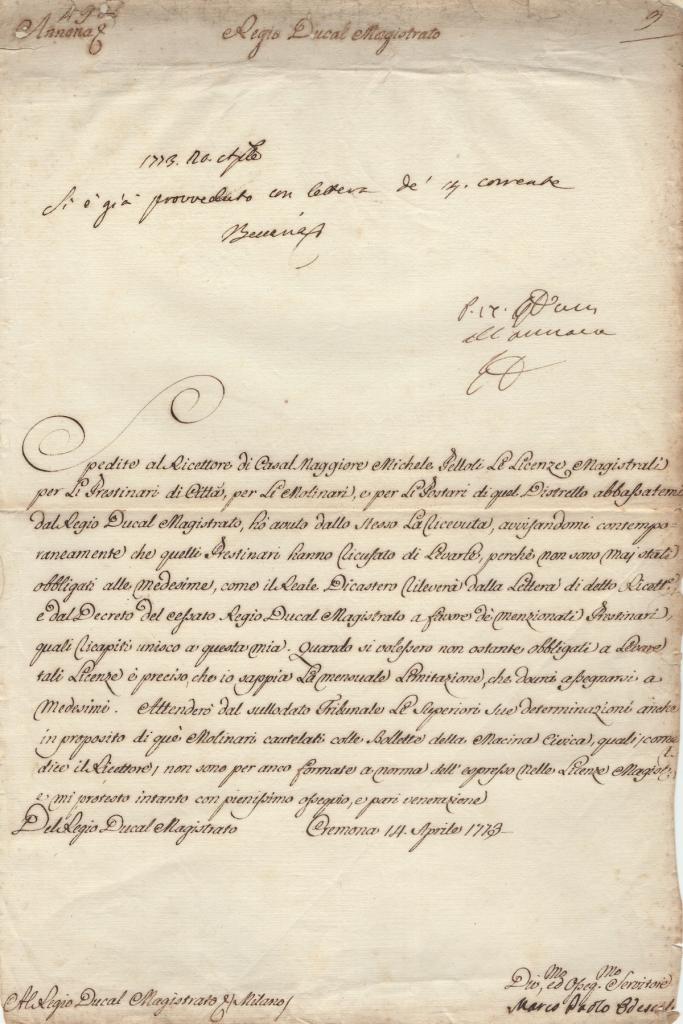 Annona
Regio Ducal Magistrato
1773. 20. Aple
Si è già provveduto con lettera de' 17. corrente
all'annona
Spedite al Ricettore di Casal Maggiore Michele Pelloli Le Licenze Magistrali
per Li Prestinari di Città, per Li Molinari, e per Li Postari di quel Distretto abbassatemi
dal Regio Ducal Magistrato, hò avuto dallo stesso La Ricevuta, avvisandomi contempo=
raneamente che quelli Prestinari hanno Ricusato di Levarle, perchè non sono maj stati
obbligati alle medesime, come il Reale Dicastero Rileverà dalla Lettera di detto Ricett.
e dal Decreto del cessato Regio Ducal Magistrato a favore de' menzionati Prestinari,
quali Ricapiti unisco a questa mia. Quando si volessero non ostante obbligati a Levare
tali Licenze è preciso, che io sappia La mensuale Limitazione, che dovrà assegnarsi a
Medesimi. Attenderò dal sullodato Tribunale Le Superiori Sue determinazioni anche
in proposito di que' Molinari cautelati colle Bollette della Macina Civica, quali, come
dice il Ricettore, non sono per anco formate a norma dell'espresso nelle Licenze Magist.
e mi protesto intanto con pienissimo ossequio, e pari venerazione
Del Regio Ducal Magistrato Cremona 14. Aprile 1773
Div.mo ed Osseq.mo Servitore
Al Regio Ducal Magistrato Milano
Marco Paolo